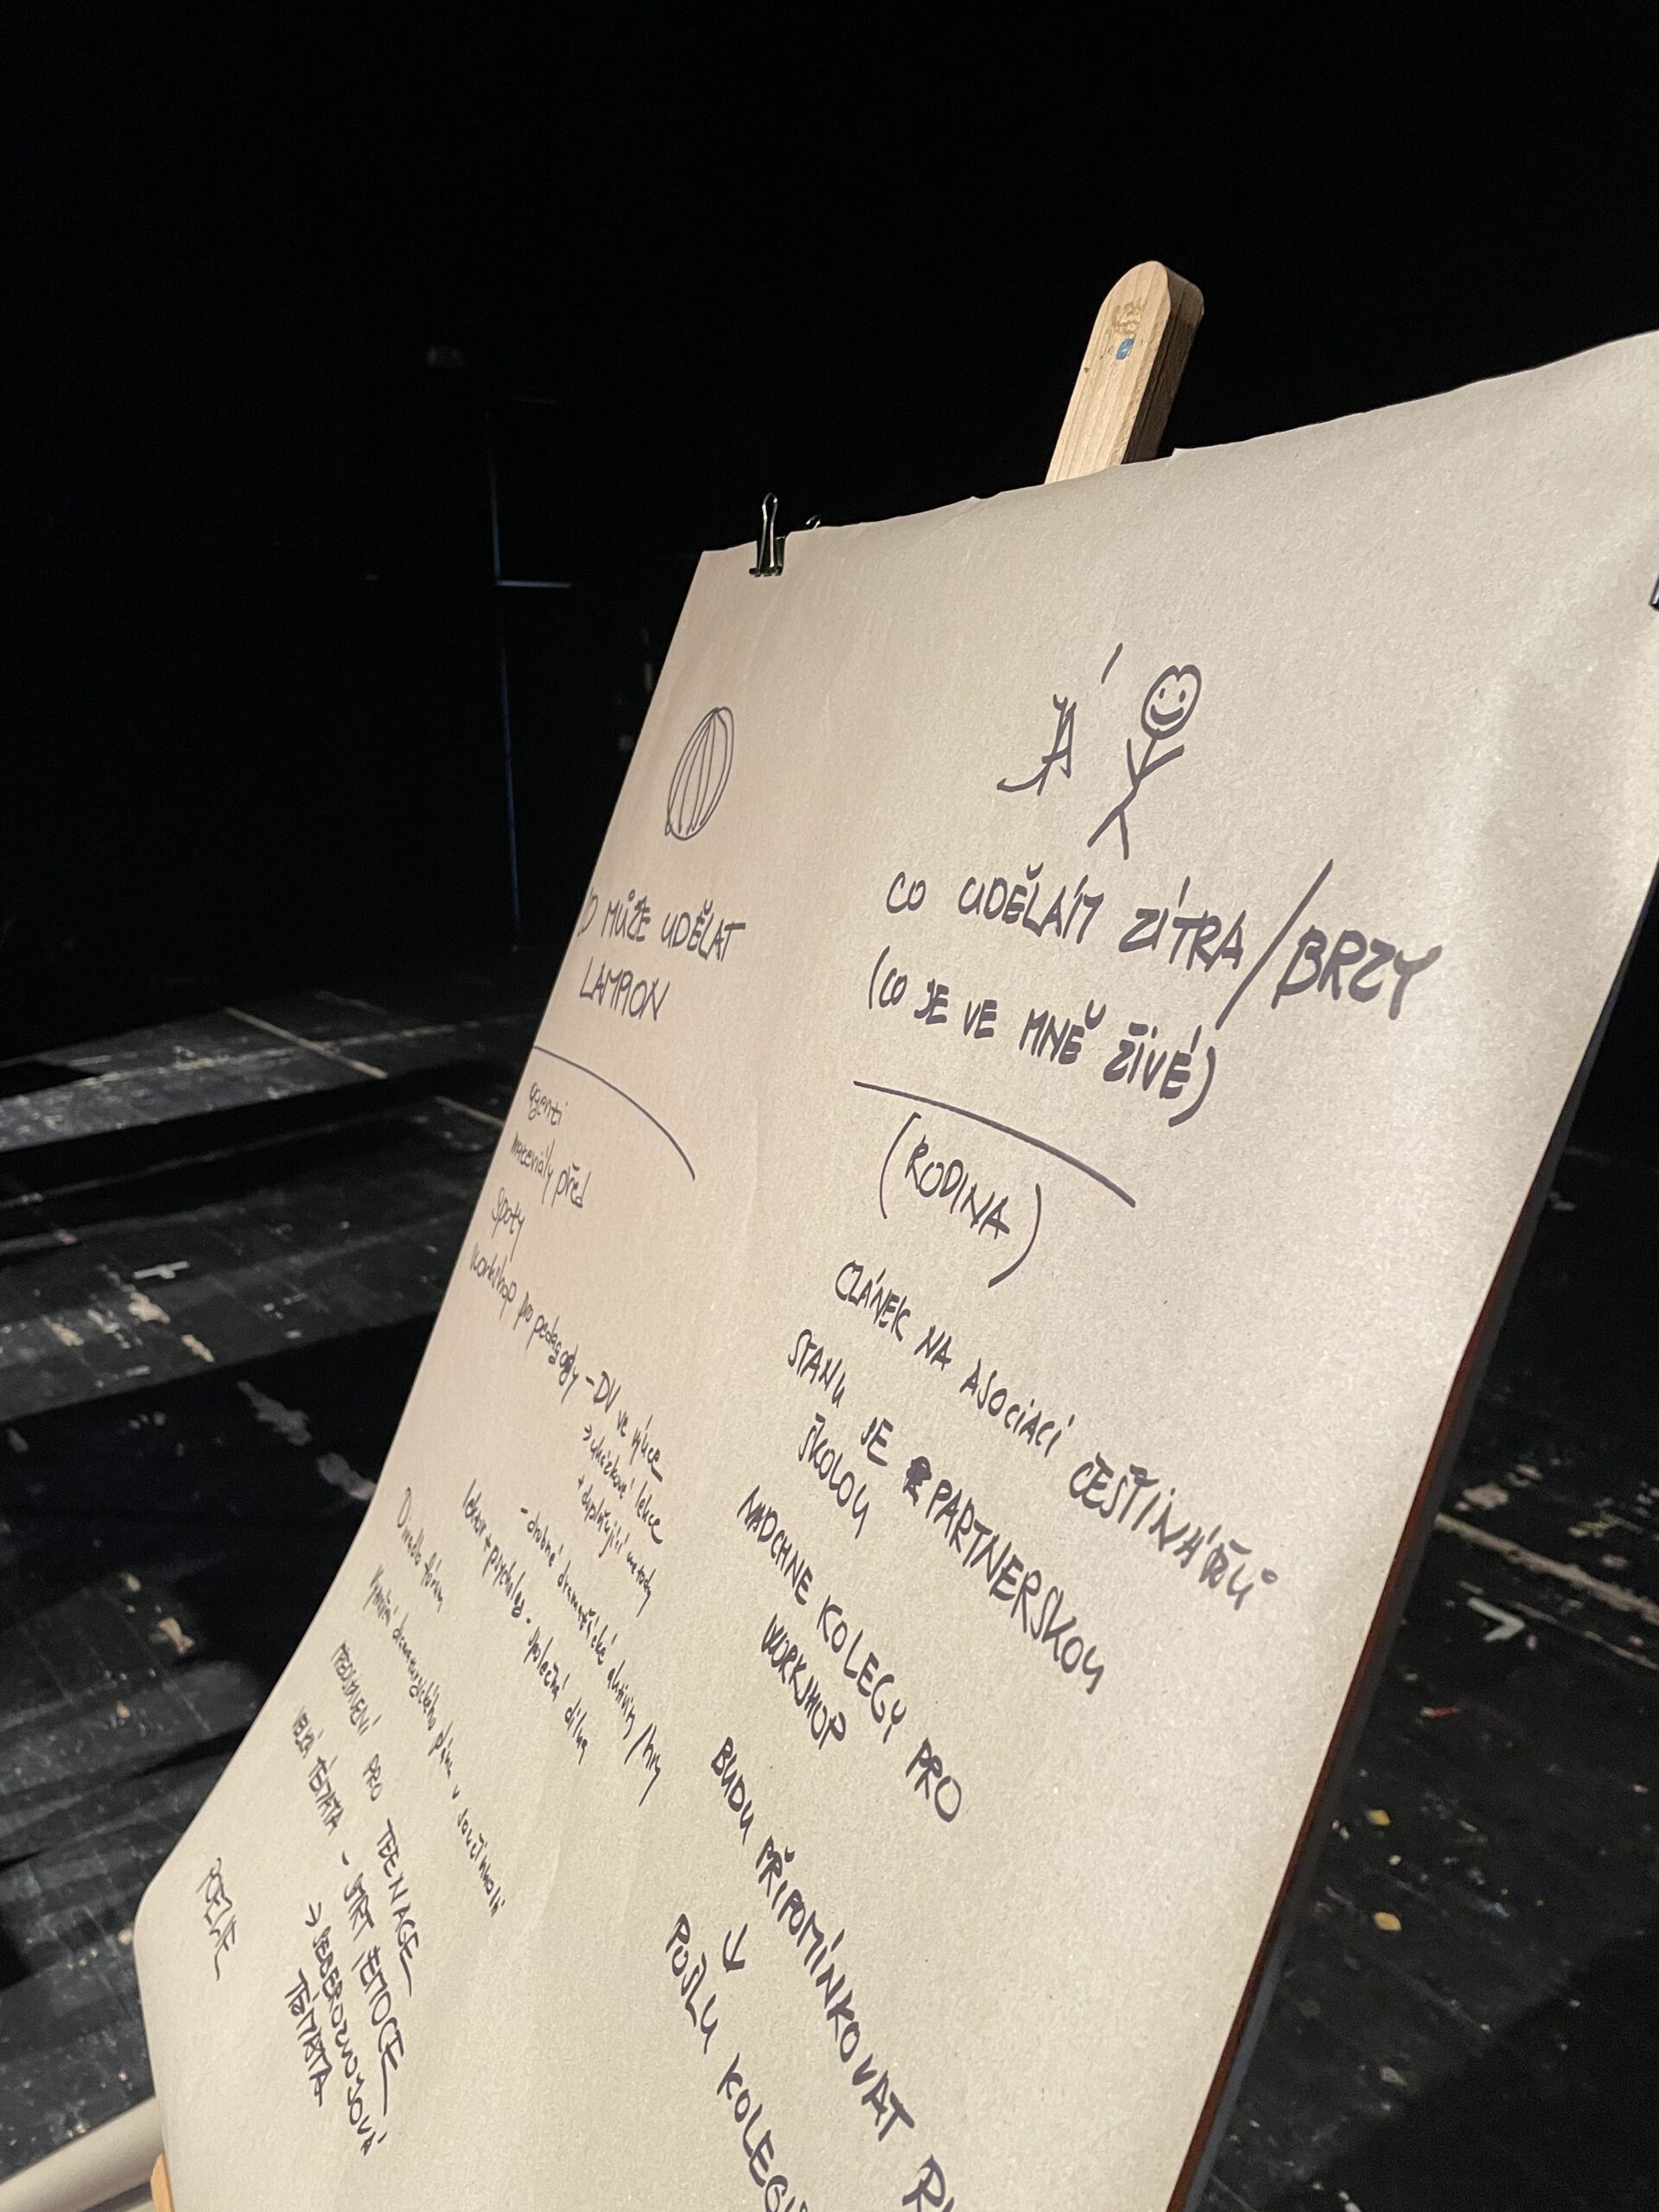 MŮŽE UDĚLAT
LAMPION
agenti
materiály před
spoty
workshop pro pedagogy - DV ve výuce
→ ukázkové lekce
+ doplňující metody
- drobné dramatické aktivity / hry
lektor + psycholog - společná dílna
Divadlo fórum
dramaturgického plánu v souvislosti
PŘEDSTAVENÍ PRO TEENAGE
TĚŽŠÍ TÉMATA - SMRT EMOCE
→ SEBEROZVOJOVÁ
TÉMATA
JÁ
CO UDĚLÁM ZÍTRA/BRZY
(CO JE VE MNĚ ŽIVÉ)
(RODINA)
ČLÁNEK NA ASOCIACI ČEŠTINÁŘŮ
STANU SE PARTNERSKOU
ŠKOLOU
NADCHNE KOLEGY PRO
WORKSHOP
BUDU PŘIPOMÍNKOVAT
↓
POŠLU